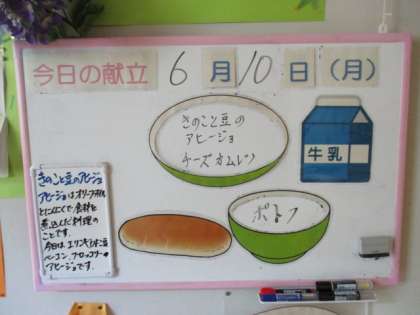 今日の献立 6月10日(月)
きのこと豆の
アヒージョ
チーズオムレツ
牛乳
ポトフ
きのこと豆のアヒージョ
アヒージョはオリーブオイル
とにんにくで、食材を
煮込んだ料理の
ことです。
今日は、エリンギ、
ベーコン、ブロッコリーの
アヒージョです。